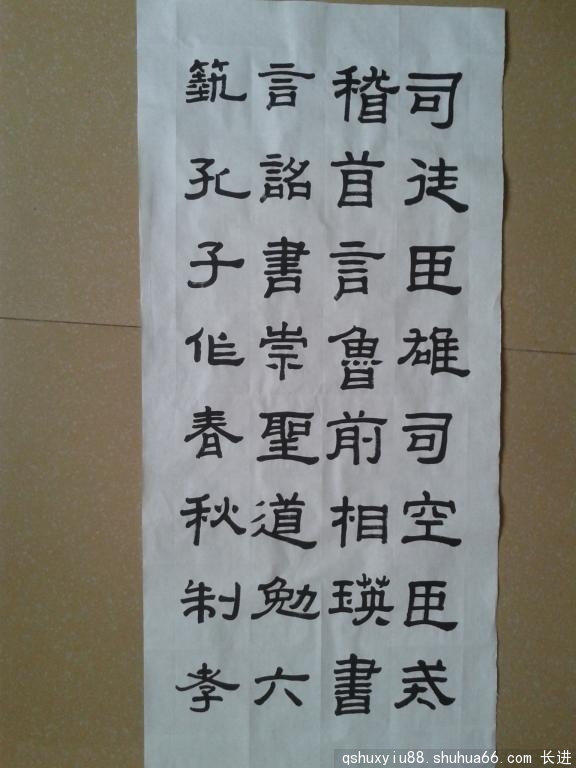 司徒臣雄司空臣戒
稽首言魯前相瑛書
言詔書崇聖道勉六
蓺孔子作春秋制孝
qshuxyiu88.shuhua66.com 长进